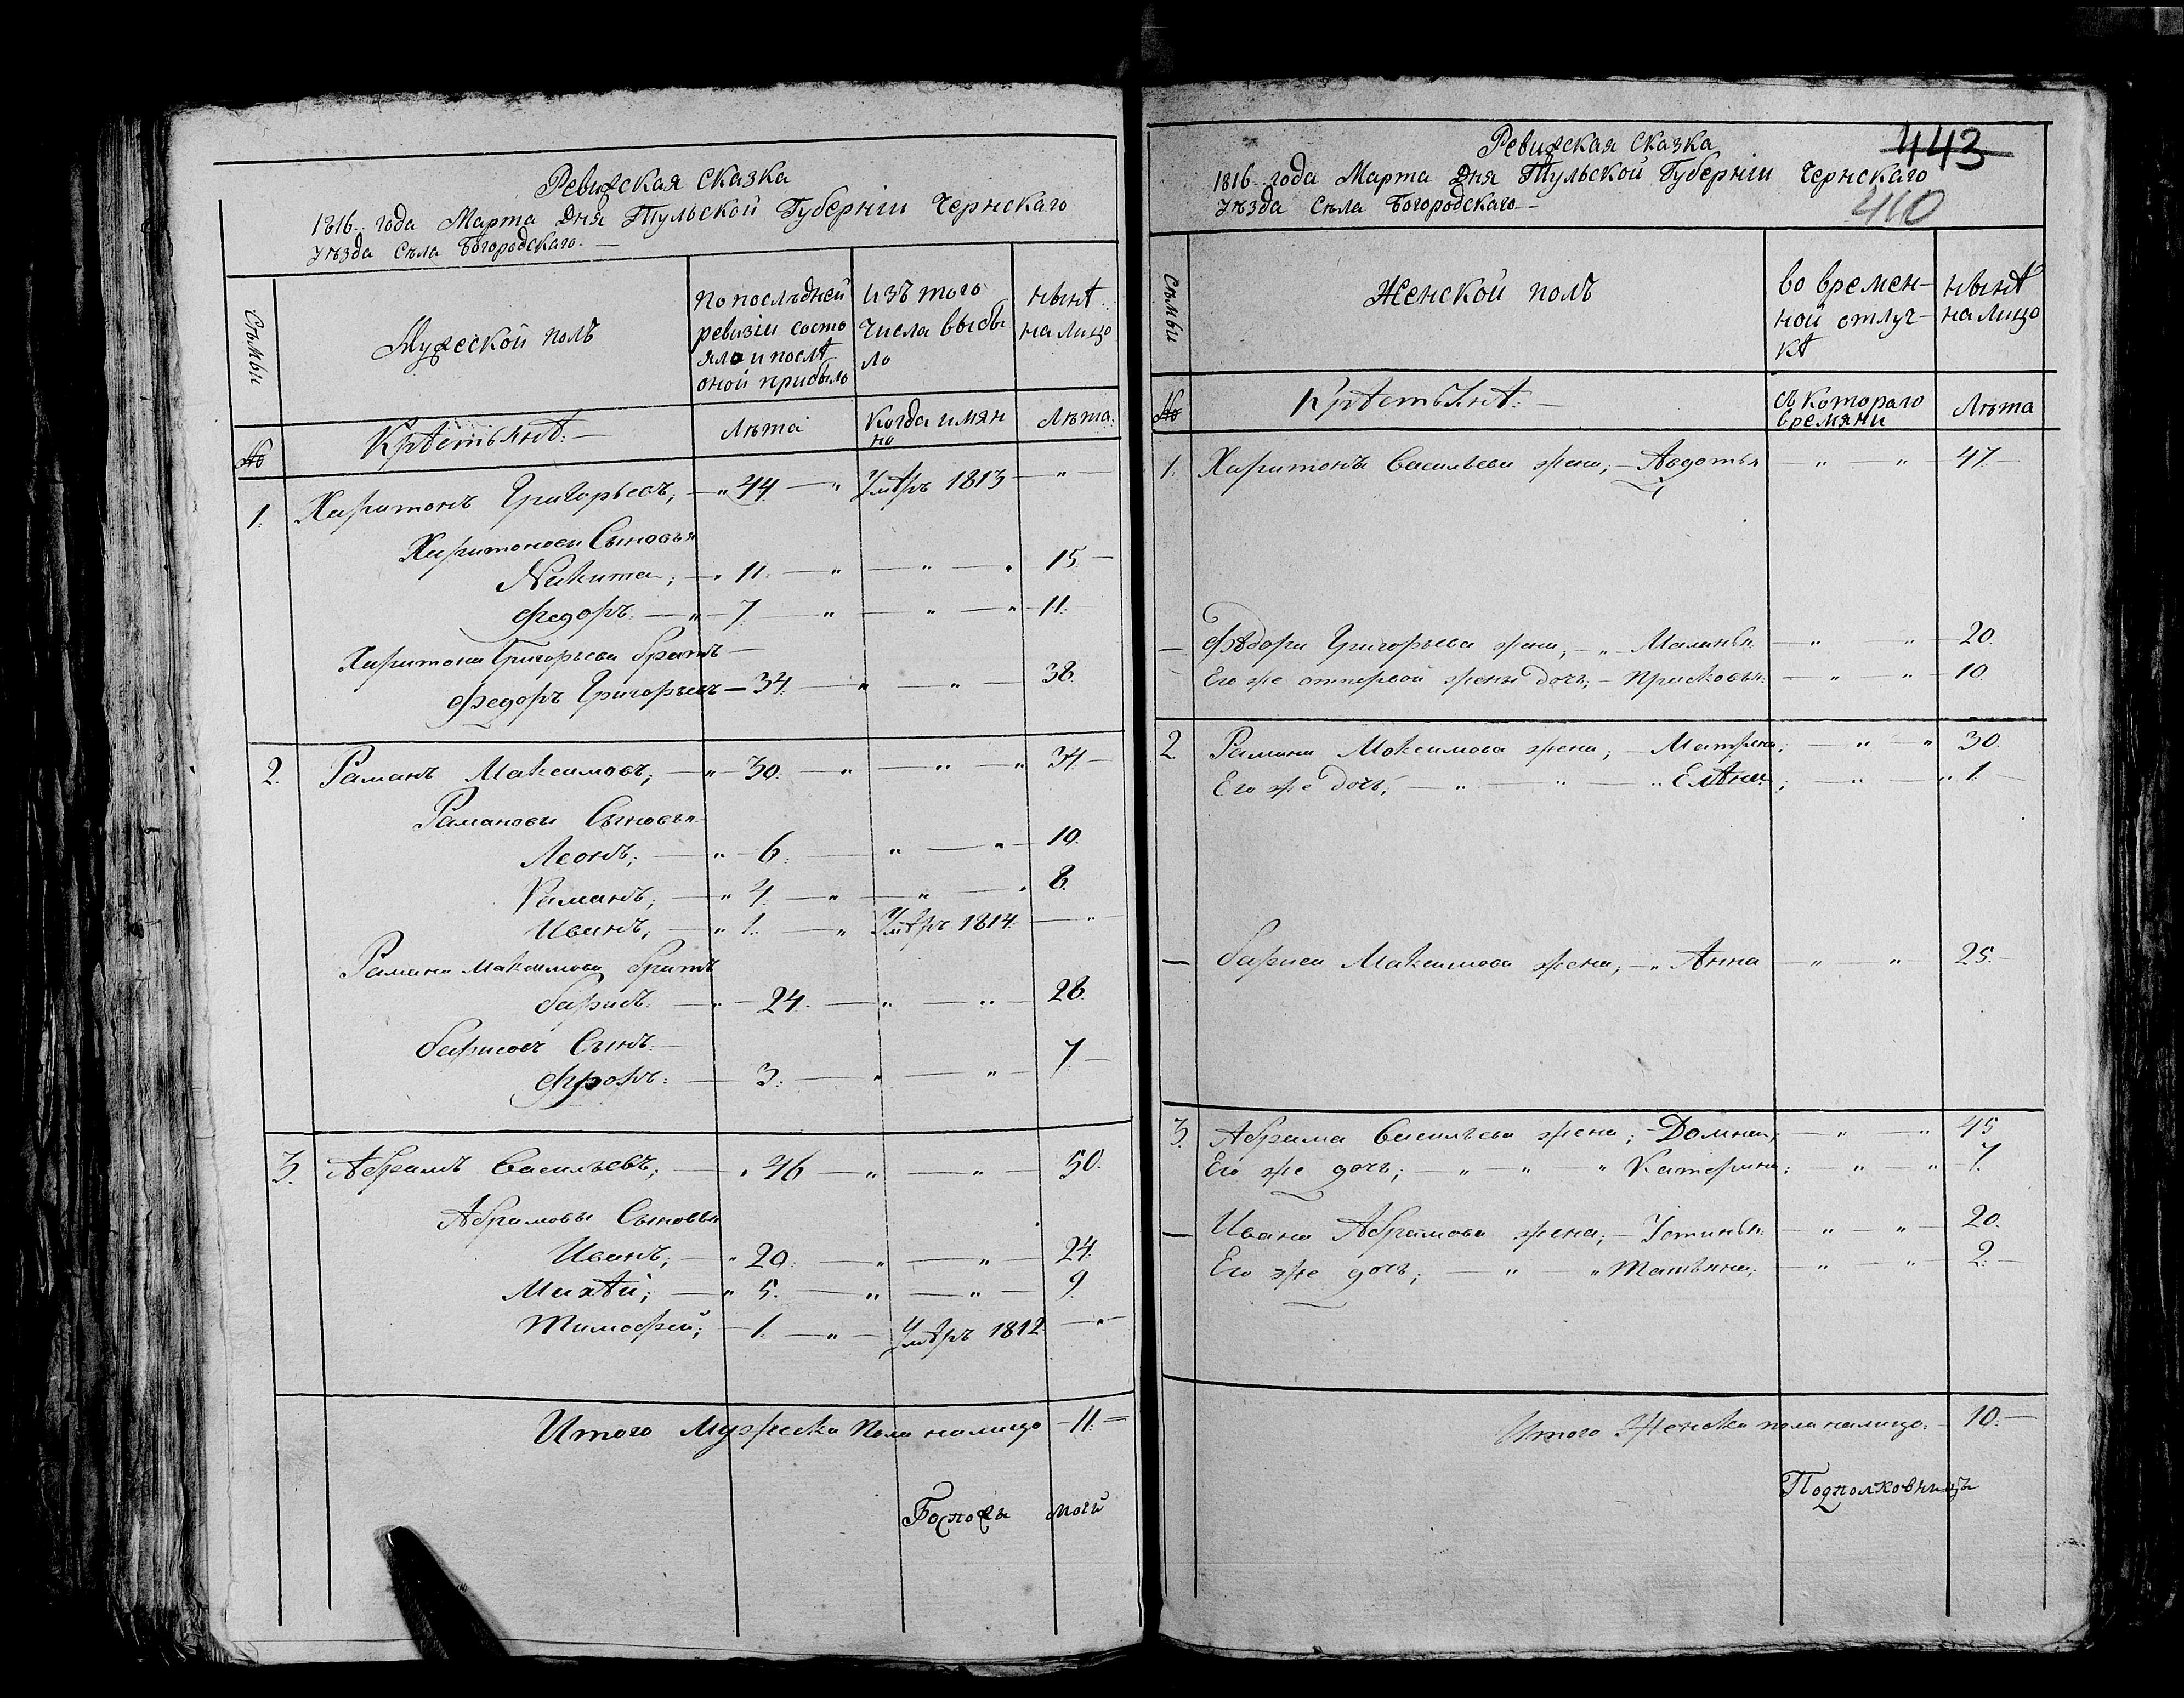 Ревижская Сказка
1816 года Марта Дня Тульской Губерніи Чернскаго
Уѣзда Сѣла Богородскаго
Сѣмьи
Мужеской полъ
По послѣдней ревизіи состояло и послѣ оной прибыло
Изъ того числа выбыло
Нынѣ на лицо
№
Крѣстьянѣ:
Лѣта
Когда имянно
Лѣта
1. Харитонъ Григорьевъ; 44 Умѣръ 1813
Харитоновы Сыновья
Никита; 11. 15.
Федоръ 7. 11.
Харитона Григорьева братъ
Федоръ Григорьевъ 34. 38.
2. Раманъ Максимовъ; 30. 34
Рамановы Сыновья
Леонъ; 6. 10.
Раманъ; 4. 8.
Иванъ; 1. Умѣръ 1814.
Рамана Максимова братъ
барисъ. 24. 28.
барисовъ Сынъ
Фролъ. 3. 7
3. Абрамъ Васильевъ; 46 50.
Абрамовы Сыновья
Иванъ; 20. 24.
Михѣй; 5. 9.
Тимофей; 1. Умѣръ 1812.
Итого Мужеска Пола налицо 11.
Госпожи моей
Ревижская Сказка
443
1816 года Марта Дня Тульской Губерніи Чернскаго
Уѣзда Сѣла Богородскаго
410
Сѣмьи
Женской полъ
во временной отлучкѣ
нынѣ на лицо
№
Крѣстьянѣ:
съ котораго времяни
Лѣта
1. Харитона Васильева жена, Авдотья 47.
Фѣдора Григорьева жена, Маланья 20.
Его же отпервой жены дочь; Прасковья: 10.
2 Рамана Моксимова жена; Матрена; 30.
Его же дочь; Елѣна; 1.
бариса Максимова жена; Анна 25.
3. Абрама Васильева жена; Домна; 45
Его же дочь; Катерина; 7.
Ивана Абрамова жена; Устинья 20.
Его же дочь; Татьяна; 2.
Итого Женска пола налицо. 10.
Подполковницы